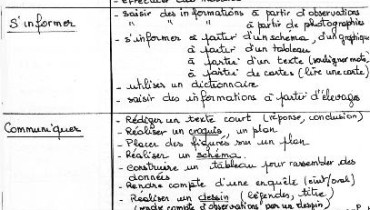 S'informer
- saisir des informations à partir d'observations
" " " à partir de photographies
- s'informer à partir d'un schéma, d'un graphique
à partir d'un tableau
à partir d'un texte (souligner mots
à partir de cartes (lire une carte)
- utiliser un dictionnaire
- saisir des informations à partir d'élevages
Communiquer
- Rédiger un texte court (réponse, conclusion)
- Réaliser un croquis, un plan
- Placer des figures sur un plan
- Réaliser un schéma
- construire un tableau pour rassembler des
données
- Rendre compte d'une enquête (écrit/oral)
- Realiser un dessin (légendes, titre)
(rendre compte d'observations par un dessin)